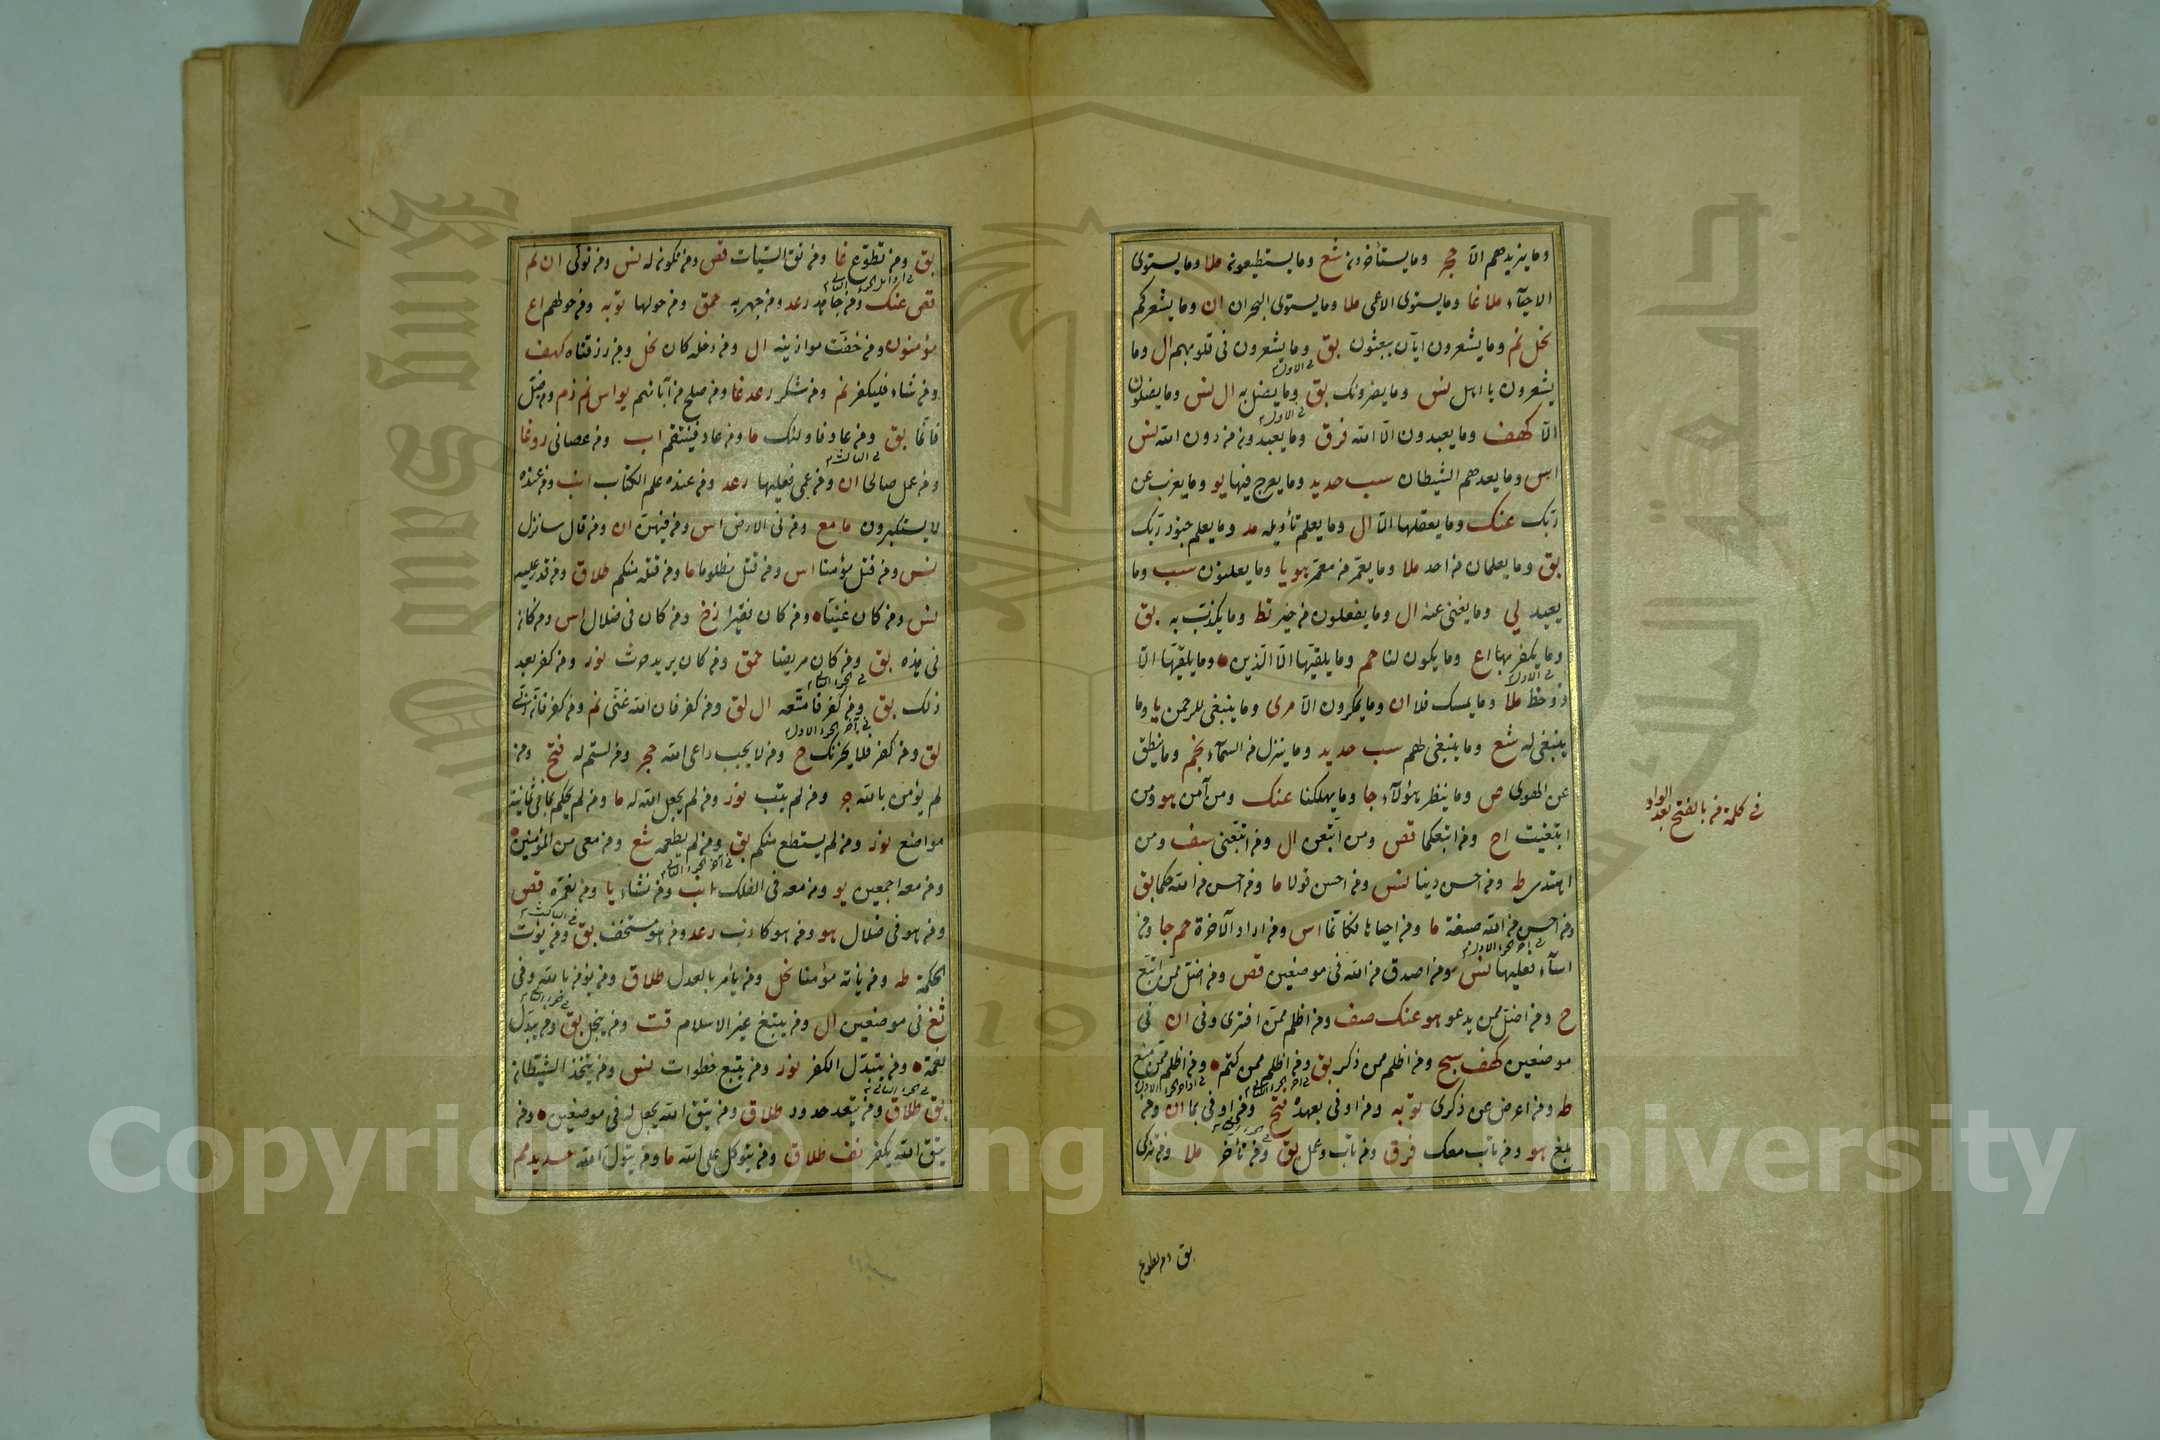 وما يزيدهم الا حجر وما يستأخرون شع وما يستطيعون ملا وما يستوى
الاحيآء ملا غا وما يستوى الاعمى ملا وما يستوى البحران ان وما يشعركم
نحل نم وما يشعرون ايان يبعثون بق وما يشعرون فى قلوبهم ال وما
فى الاول
يشعرون يا اهل نس وما يضرونك بق وما يضل به ال نس وما يضلون
فى الاول
الا كهف وما يعبدون الا الله فرق وما يعبدون من دون الله نس
اس وما يعدهم الشيطان سب حديد وما يعرج فيها يو وما يعزب عن
ربك عنك وما يعقلها الا ال وما يعلم تأويله مد وما يعلم جنود ربك
بق وما يعلمان من احد ملا وما يعمر من معمر هو يا وما يعلنون سب وما
يعيد لي وما يغنى عنه ال وما يفعلوا من خير نط وما يكذب به بق
وما يكفر بها اع وما يكون لنا حم وما يلقيها الا الذين وما يلقيها الا
فى الاول
ذو حظ ملا وما يمسك فلا ان وما يمكرون الا مرى وما ينبغى للرحمن يا وما
ينبغى له شع وما ينبغى لهم سب حديد وما ينزل من السمآء نجم وما ينطق
عن الهوى ص وما ينظر هؤلآء جا وما يهلكنا عنك ومن آمن هو ومن
ابتغيت اح ومن اتبعكما قص ومن اتبعن ال ومن اتبعنى سف ومن
اهتدى طه ومن احسن دينا نس ومن احسن قولا ما ومن احسن من الله حكما بق
ومن احسن من الله صبغة ما ومن احياها فكانما اس ومن اراد الآخرة حم جا ومن
فى آخر الجزء الاول
اسآء فعليها نس ومن اصدق من الله فى موضعين قص ومن اضل ممن اتبع
ح ومن اضل ممن يدعو هو عنك صف ومن اظلم ممن افترى وفى ان فى
موضعين كهف سج ومن اظلم ممن ذكر بق ومن اظلم ممن كتم ومن اظلم ممن منع
طه ومن اعرض عن ذكرى توبه ومن اوفى بعهده فتح ومن اوفى بما ان ومن
بلغ هو ومن تاب معك فرق ومن تاب وعمل بق ومن تأخر ملا ومن تزكى
بق ومن تطوع
فى كلمة من بالفتح بعد الواو
بق ومن تطوع غا ومن تق السيئات قص ومن تكون له نس ومن تولى ان نم
قص عنك ومن جاهد رعد ومن جهر به حمق ومن حولها توبه ومن حولهم اع
مؤمنون ومن خفت موازينه ال ومن دخله كان نحل ومن رزقناه كهف
ومن شاء فليكفر نم ومن شكر رعد غا ومن صلح من آبائهم يو اس نم زم ومن ضل
فانما بق ومن عاد فاولئك ما ومن عاد فينتقم اب ومن عصانى رو غا
فى الثالث
ومن عمل صالحا ان ومن عمى فعليها رعد ومن عنده علم الكتاب انب ومن عنده
لا يستكبرون ما مع ومن فى الارض اس ومن فيهن ان ومن قال سانزل
نس ومن قتل مؤمنا اس ومن قتل مظلوما ما ومن قتله منكم طلاق ومن قدر عليه
نس ومن كان غنيا ومن كان فقيرا زخ ومن كان فى ضلال اس ومن كان
فى هذه بق ومن كان مريضا حمق ومن كان يريد حرث نور ومن كفر بعد
ذلك بق ومن كفر فامتعه ال لق ومن كفر فان الله غنى نم ومن كفر فان ربى
فى آخر الجزء الاول
لق ومن كفر فلا يحزنك ح ومن لا يجب داعى الله حجر ومن لستم له فتح ومن
لم يؤمن بالله حر ومن لم يتب نور ومن لم يجعل الله له ما ومن لم يحكم بما فى ثلثة
مواضع نور ومن لم يستطع منكم بق ومن لم يطعمه شع ومن معى من المؤمنين
ومن معه اجمعين يو ومن معه فى الفلك انب ومن نشاء يا ومن نعمره قص
فى الثالث
ومن هو فى ضلال هو ومن هو كاذب رعد ومن هو مستخف بق ومن يؤت
الحكمة طه ومن يأته مؤمنا نحل ومن يأمر بالعدل طلاق ومن يؤمن بالله وفى
تغ فى موضعين ال ومن يبتغ غير الاسلام قت ومن يبخل بق ومن يبدل
نعمة ومن يتبدل الكفر نور ومن يتبع خطوات نس ومن يتخذ الشيطان
بق طلاق ومن يتعد حدود طلاق ومن يتق الله يجعل له فى موضعين ومن
يتق الله يكفر نف طلاق ومن يتوكل على الله ما ومن يتول الله حديد مم
King Saud University
جامعة الملك سعود
1957
Copyright © King Saud University